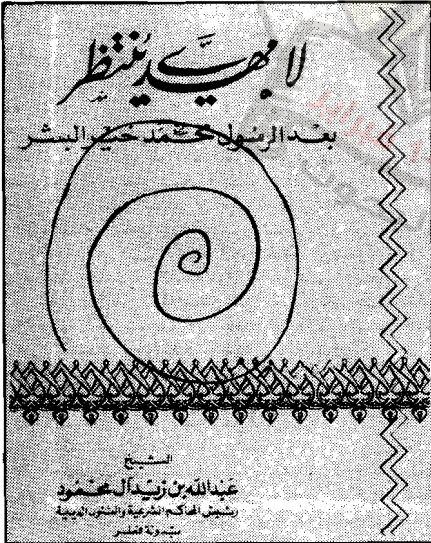 لا مهدي يُنتظر
بعد الرسول محمد خير البشر
الشيخ
عبدالله بن زيد آل محمود
رئيس المحاكم الشرعية والشئون الدينية
بدولة قطر